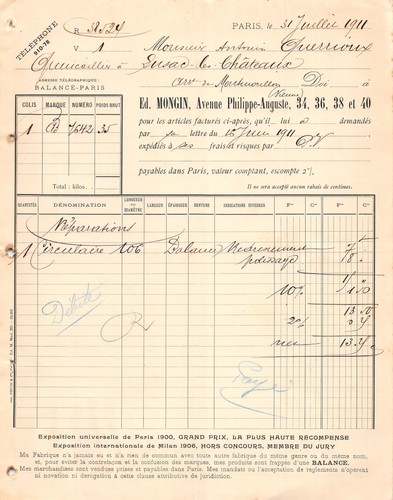 TÉLÉPHONE
910-76
R 58.524
PARIS, le 31 Juillet 1911
V 1 Monsieur Antonin
Quincailler à Lussac-les-Châteaux
Arrt de Montmorillon Doit à
(Vienne)
ADRESSE TÉLÉGRAPHIQUE :
BALANCE-PARIS
COLIS MARQUE NUMÉRO POIDS BRUT
1 35
Total : kilos.
Ed. MONGIN, Avenue Philippe-Auguste, 34, 36, 38 et 40
pour les articles facturés ci-après, qu'il a demandés
par sa lettre du 15 Juin 1911
expédiés à ses frais et risques par P.V.
payables dans Paris, valeur comptant, escompte 2%
Il ne sera accepté aucun rabais de centimes.
QUANTITÉS DÉNOMINATION LONGUEUR ou DIAMÈTRE LARGEUR ÉPAISSEUR DENTURE INDICATIONS DIVERSES Fcs Cs Fcs Cs
Réparations
1 Circulaire 106 Redressement 7
18
10%
2%
net
Débité
R
Payé
Exposition universelle de Paris 1900, GRAND PRIX, LA PLUS HAUTE RÉCOMPENSE
Exposition internationale de Milan 1906, HORS CONCOURS, MEMBRE DU JURY
Ma Fabrique n'a jamais eu et n'a rien de commun avec toute autre fabrique du même genre ou du même nom,
et, pour éviter la contrefaçon et la confusion des marques, mes produits sont frappés d'une BALANCE.
Mes marchandises sont vendues prises et payables dans Paris. Mes mandats ou l'acceptation de règlements n'opèrent
ni novation ni dérogation à cette clause attributive de juridiction.